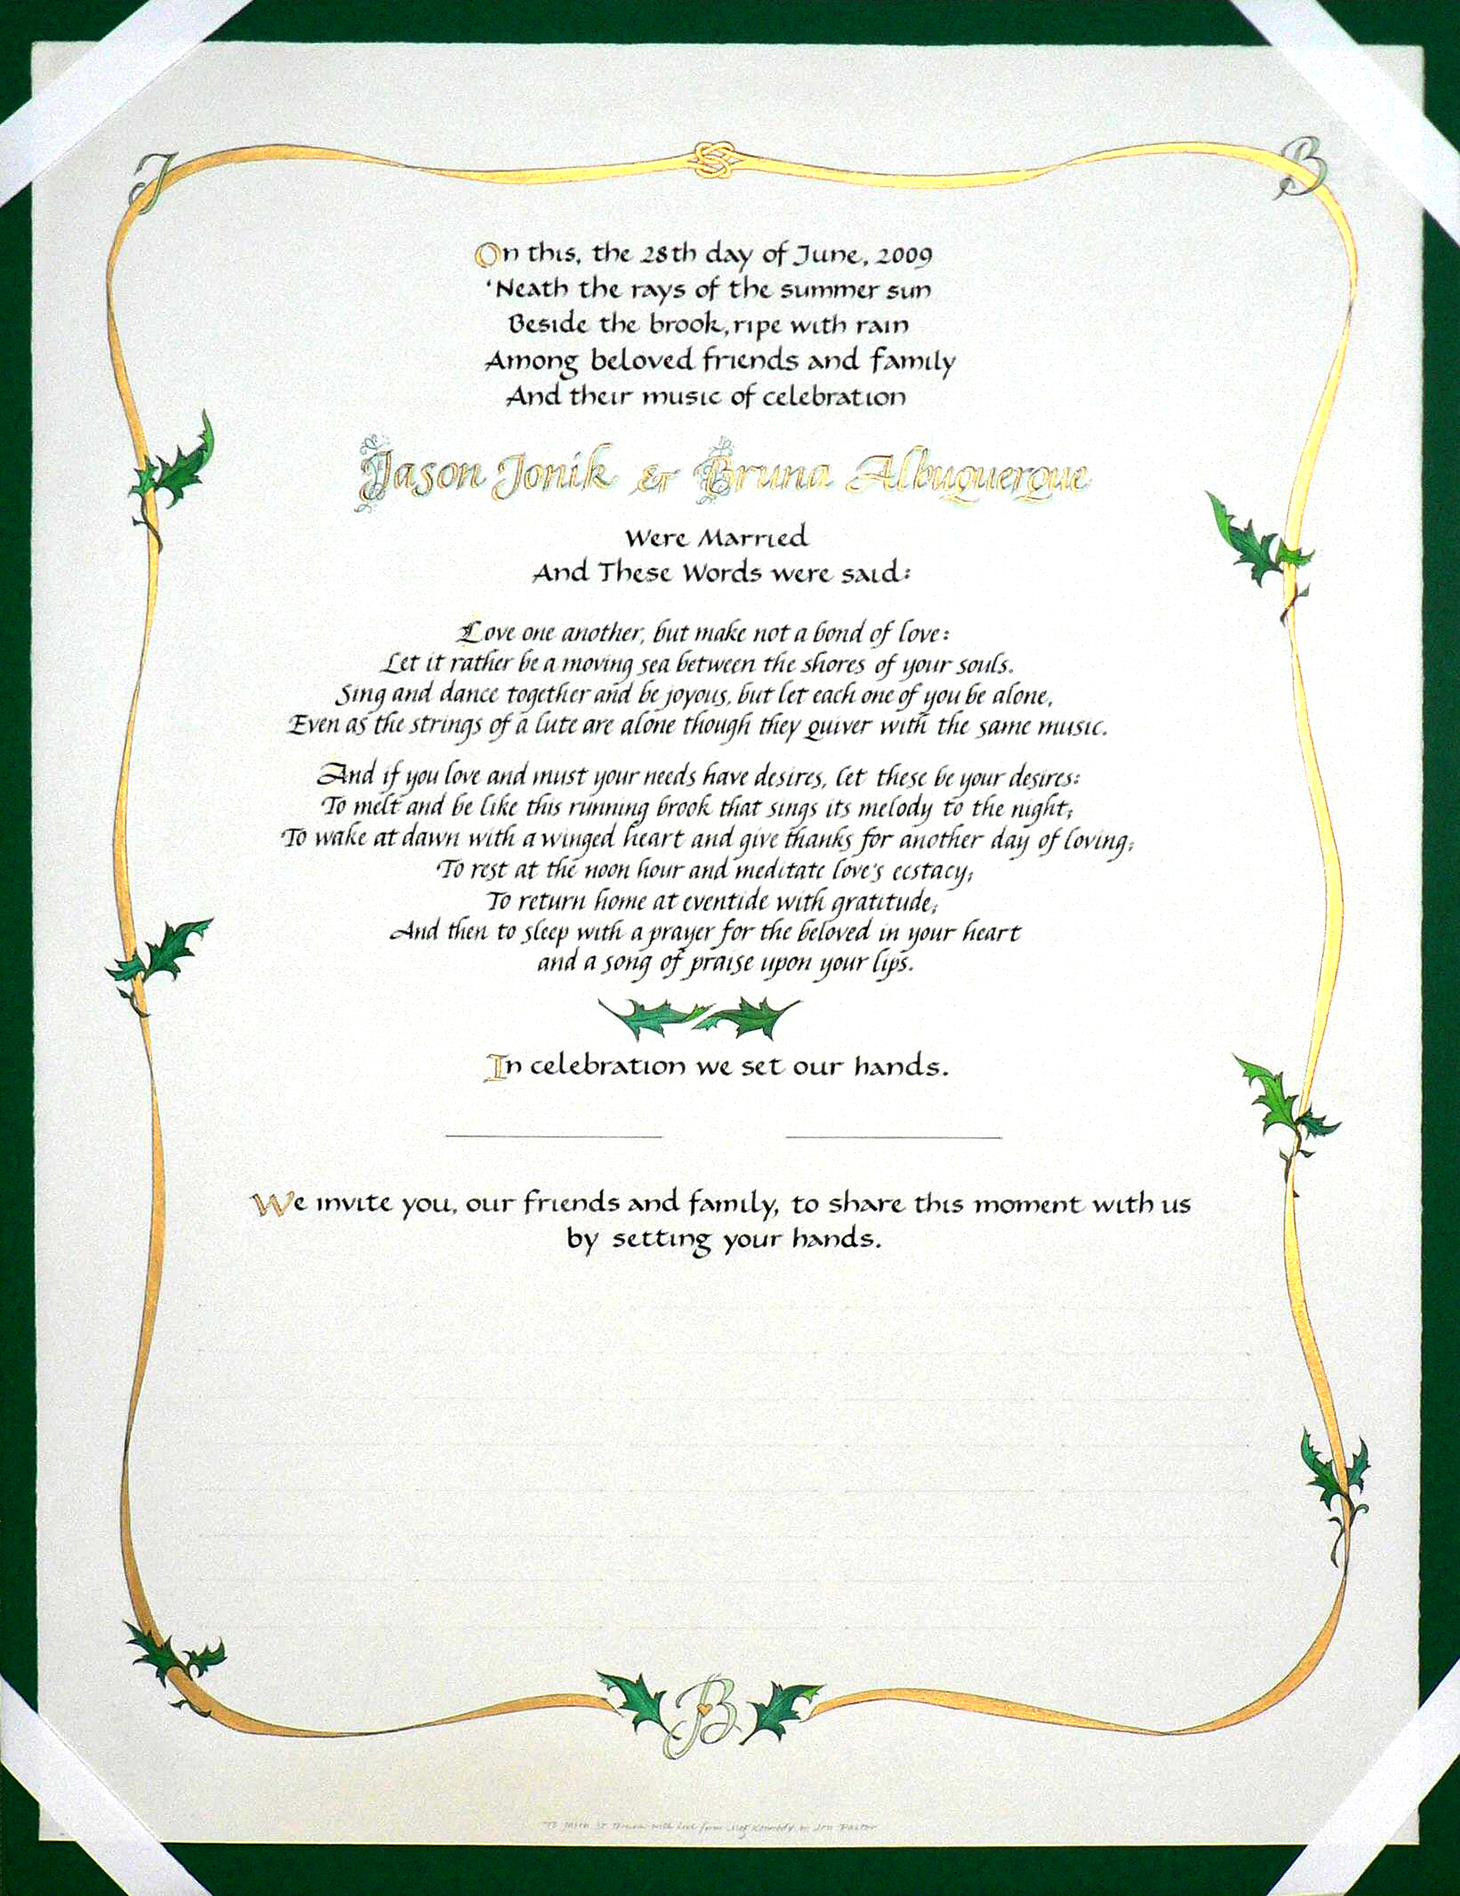 J B
On this, the 28th day of June, 2009
'Neath the rays of the summer sun
Beside the brook, ripe with rain
Among beloved friends and family
And their music of celebration
Jason Jonik & Bruna Albuquerque
Were Married
And These Words were said:
Love one another, but make not a bond of love:
Let it rather be a moving sea between the shores of your souls.
Sing and dance together and be joyous, but let each one of you be alone,
Even as the strings of a lute are alone though they quiver with the same music.
And if you love and must your needs have desires, let these be your desires:
To melt and be like this running brook that sings its melody to the night;
To wake at dawn with a winged heart and give thanks for another day of loving;
To rest at the noon hour and meditate love's ecstacy;
To return home at eventide with gratitude;
And then to sleep with a prayer for the beloved in your heart
and a song of praise upon your lips.
In celebration we set our hands.
We invite you, our friends and family, to share this moment with us
by setting your hands.
JB
To Jason & Bruna with love from Meg Kennedy & Jon Pastor